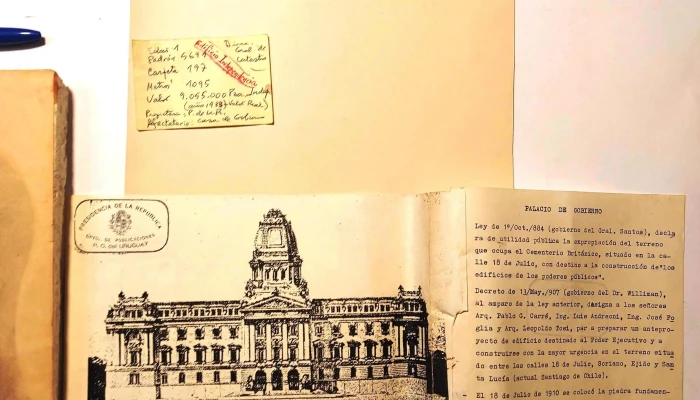 Padrón 5691
Carpeta 197
Metros² 1095
Edificio Independencia
Dirac.
Gral de
Catastro
Valor 9.055.000 Pesos
(año 1938 Valor Real)
Propietario: P. de la R.
Casa de Gobierno
PRESIDENCIA DE LA REPUBLICA
DPTO. DE PUBLICACIONES
R. O. DE URUGUAY
PALACIO DE GOBIERNO
Ley de 1º/Oct./884 (gobierno del Gral. Santos), decla
ra de utilidad pública la expropiación del terreno
que ocupa el Cementerio Británico, situado en la ca-
lle 18 de Julio, con destino a la construcción de"los
edificios de los poderes públicos".
Decreto de 13/May./907 (gobierno del Dr. Williman),
al amparo de la ley anterior, designa a los señores
Arq. Pablo G. Carré, Ing. Luis Andreoni, Eng. José Fo
glia y Arq. Leopoldo Tosi, par a preparar un antepro-
yecto de edificio destinado al Poder Ejecutivo y a
construirse con la mayor urgencia en el terreno situa
do entre las calles 18 de Julio, Soriano, Ejido y San
ta Lucía (actual Santiago de Chile).
El 18 de Julio de 1910 se colocó la piedra fundamen-